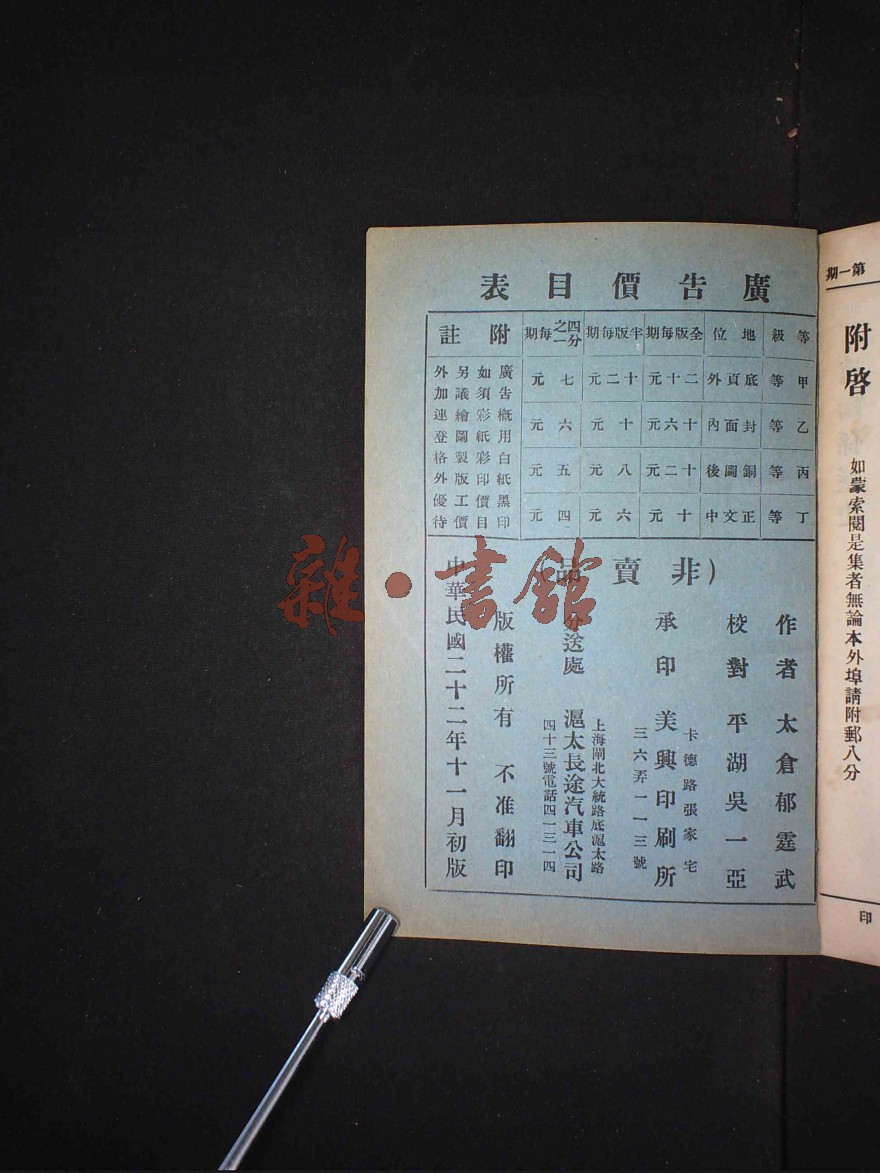 第一期
附啓
如蒙索閱是集者無論本外埠請附郵八分
印
廣告價目表
等級 地位 全版每期 半版每期 四分之一每期 附註
甲等 底頁外 二十元 十二元 七元
乙等 封面內 十六元 十元 六元
丙等 銅圖後 十二元 八元 五元
丁等 正文中 十元 六元 四元
廣告概用白紙黑印
如須彩紙彩印價目
另議繪圖製版工價
外加連登格外優待
(非賣品)
作者 太倉郁霆武
校對 平湖吳一亞
承印 美興印刷所
卡德路張家宅
三六弄一一三號
分送處 滬太長途汽車公司
上海閘北大統路底滬太路
四十三號電話四一三一四
版權所有 不准翻印
中華民國二十二年十一月初版
雜·書館